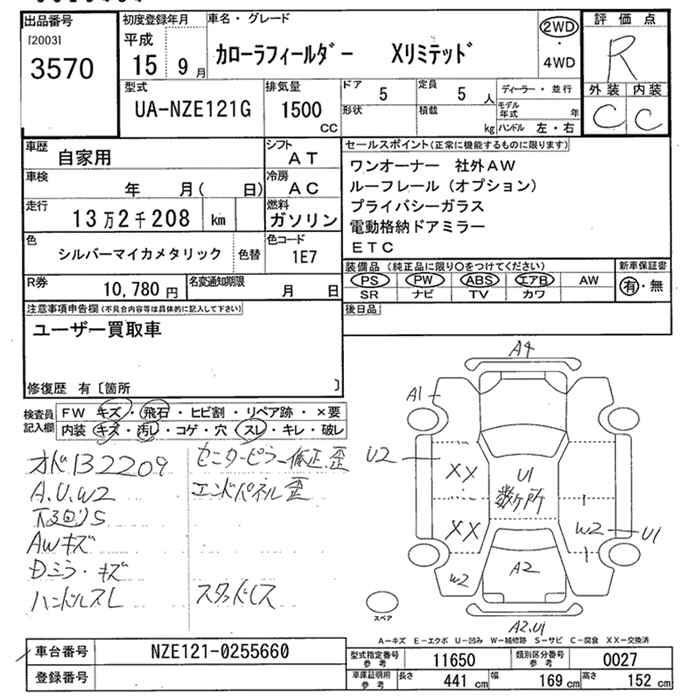 出品番号
[2003]
3570
初度登録年月
平成
15年9月
車名・グレード
カローラフィールダー Xリミテッド
2WD
・
4WD
評価点
R
外装 内装
C C
型式
UA-NZE121G
排気量
1500
CC
ドア 5
定員 5 人
形状
積載 kg
ディーラー・並行
モデル年式 年
ハンドル 左・右
車歴
自家用
シフト
AT
車検
年 月( 日)
冷房
AC
走行
13万2千208 km
燃料
ガソリン
色
シルバーマイカメタリック
色替
色コード
1E7
R券
10,780円
名変通知期限
月 日
セールスポイント(正常に機能するものに限ります)
ワンオーナー 社外AW
ルーフレール(オプション)
プライバシーガラス
電動格納ドアミラー
ETC
装備品(純正品に限り○をつけてください)
PS PW ABS エアB AW
SR ナビ TV カワ
新車保証書
有・無
後日品
注意事項申告欄(不具合内容等は具体的に記入して下さい)
ユーザー買取車
修復歴 有〔箇所 〕
検査員記入欄
FW キズ・飛石・ヒビ割・リペア跡・×要
内装 キズ・汚レ・コゲ・穴・スレ・キレ・破レ
オド132209
A.U.W2
下回りS
AWキズ
Dミラ・キズ
ハンドルスレ
センターピラー修正、歪
エンドパネル歪
スタッドレス
A4
A1
U2
XX
U1
数ヶ所
XX
W2
U1
W2
A2
A2.U1
スペア
A-キズ E-エクボ U-凹み W-補修跡 S-サビ C-腐食 XX-交換済
車台番号
NZE121-0255660
登録番号
型式指定番号 参考
11650
類別区分番号 参考
0027
車庫証明用 参考
長さ 441 cm
幅 169 cm
高さ 152 cm